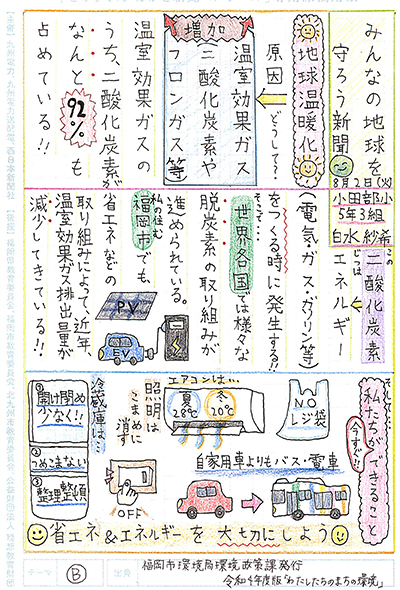 みんなの地球を
守ろう新聞
8月2日(火)
小田部小
5年3組
白水 紗希
地球温暖化
原因 どうして?
増加
温室効果ガス
二酸化炭素や
フロンガス等
温室効果ガスの
うち、二酸化炭素が
なんと92%も
占めている!!
この
二酸化炭素
じつは
エネルギー
(電気・ガス・ガソリン等)
をつくる時に発生する!!
そこで…
世界各国では様々な
脱炭素の取り組みが
進められている。
私の住む
福岡市でも、
省エネなどの
取り組みによって、近年、
温室効果ガス排出量が
減少してきている!!
PV
EV
そして…
私たちができること
今すぐ!!
NO
レジ袋
エアコンは…
夏
28℃
冬
20℃
自家用車よりもバス・電車
照明は
こまめに
消す
OFF
冷蔵庫は…
①開け閉め
少なく!!
②つめこまない
③整理整頓
省エネ&エネルギーを大切にしよう
テーマ
B
出典
福岡市環境局環境政策課発行
令和4年度版「わたしたちのまちの環境」
【主催】九州電力、九州電力送配電、西日本新聞社
【後援】福岡県教育委員会、福岡市教育委員会、北九州市教育委員会、公益財団法人理想教育財団